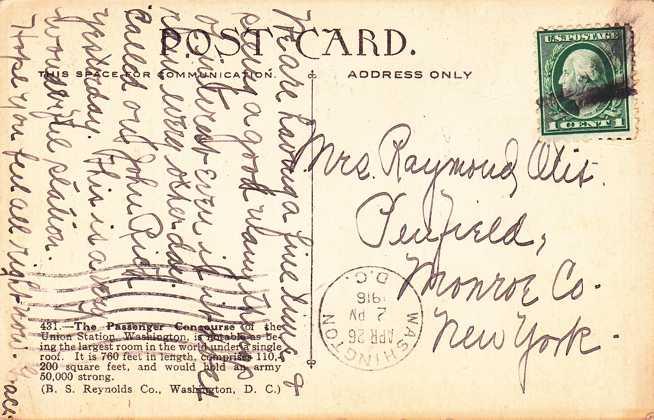 POST CARD.
THIS SPACE FOR COMMUNICATION.
ADDRESS ONLY
U.S. POSTAGE
1 CENT 1
We are having a fine time &
seeing a good many things
of interest even if it does
rain every other day.
Called on John Rich
yesterday. This is a very
wonderful station.
Hope you feel all right now.
Mrs. Raymond
Penfield,
Monroe Co.
New York.
WASHINGTON
APR 26
2 PM
1916
D.C.
431.—The Passenger Concourse of the
Union Station, Washington, is notable as be-
ing the largest room in the world under a single
roof. It is 760 feet in length, comprises 110,4
200 square feet, and would hold an army
50,000 strong.
(B. S. Reynolds Co., Washington, D. C.)